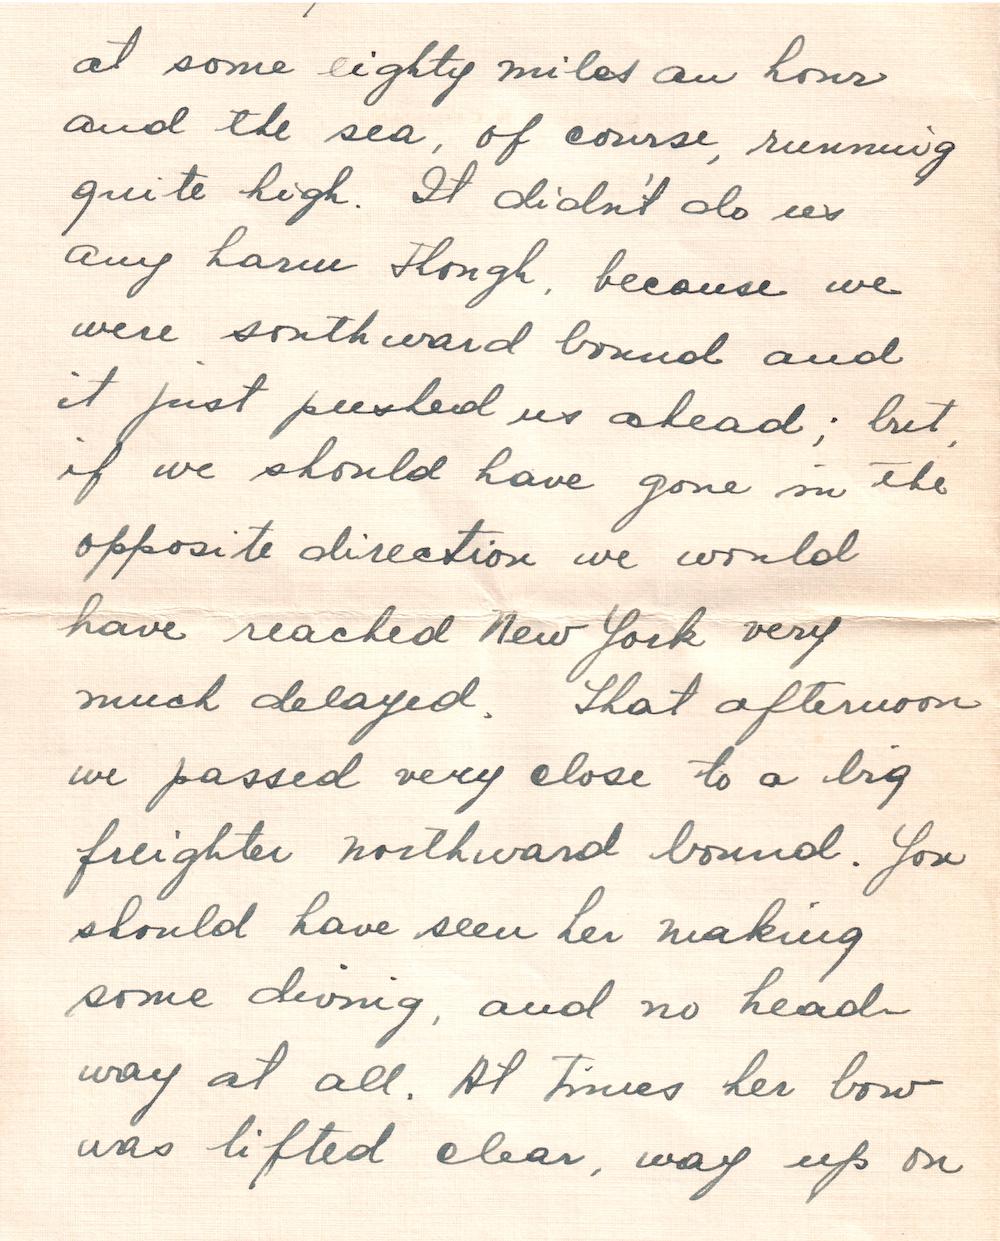 at some eighty miles an hour
and the sea, of course, running
quite high. It didn't do us
any harm though, because we
were southward bound and
it just pushed us ahead; but,
if we should have gone in the
opposite direction we would
have reached New York very
much delayed. That afternoon
we passed very close to a big
freighter northward bound. You
should have seen her making
some diving, and no head-
way at all. At times her bow
was lifted clear, way up on